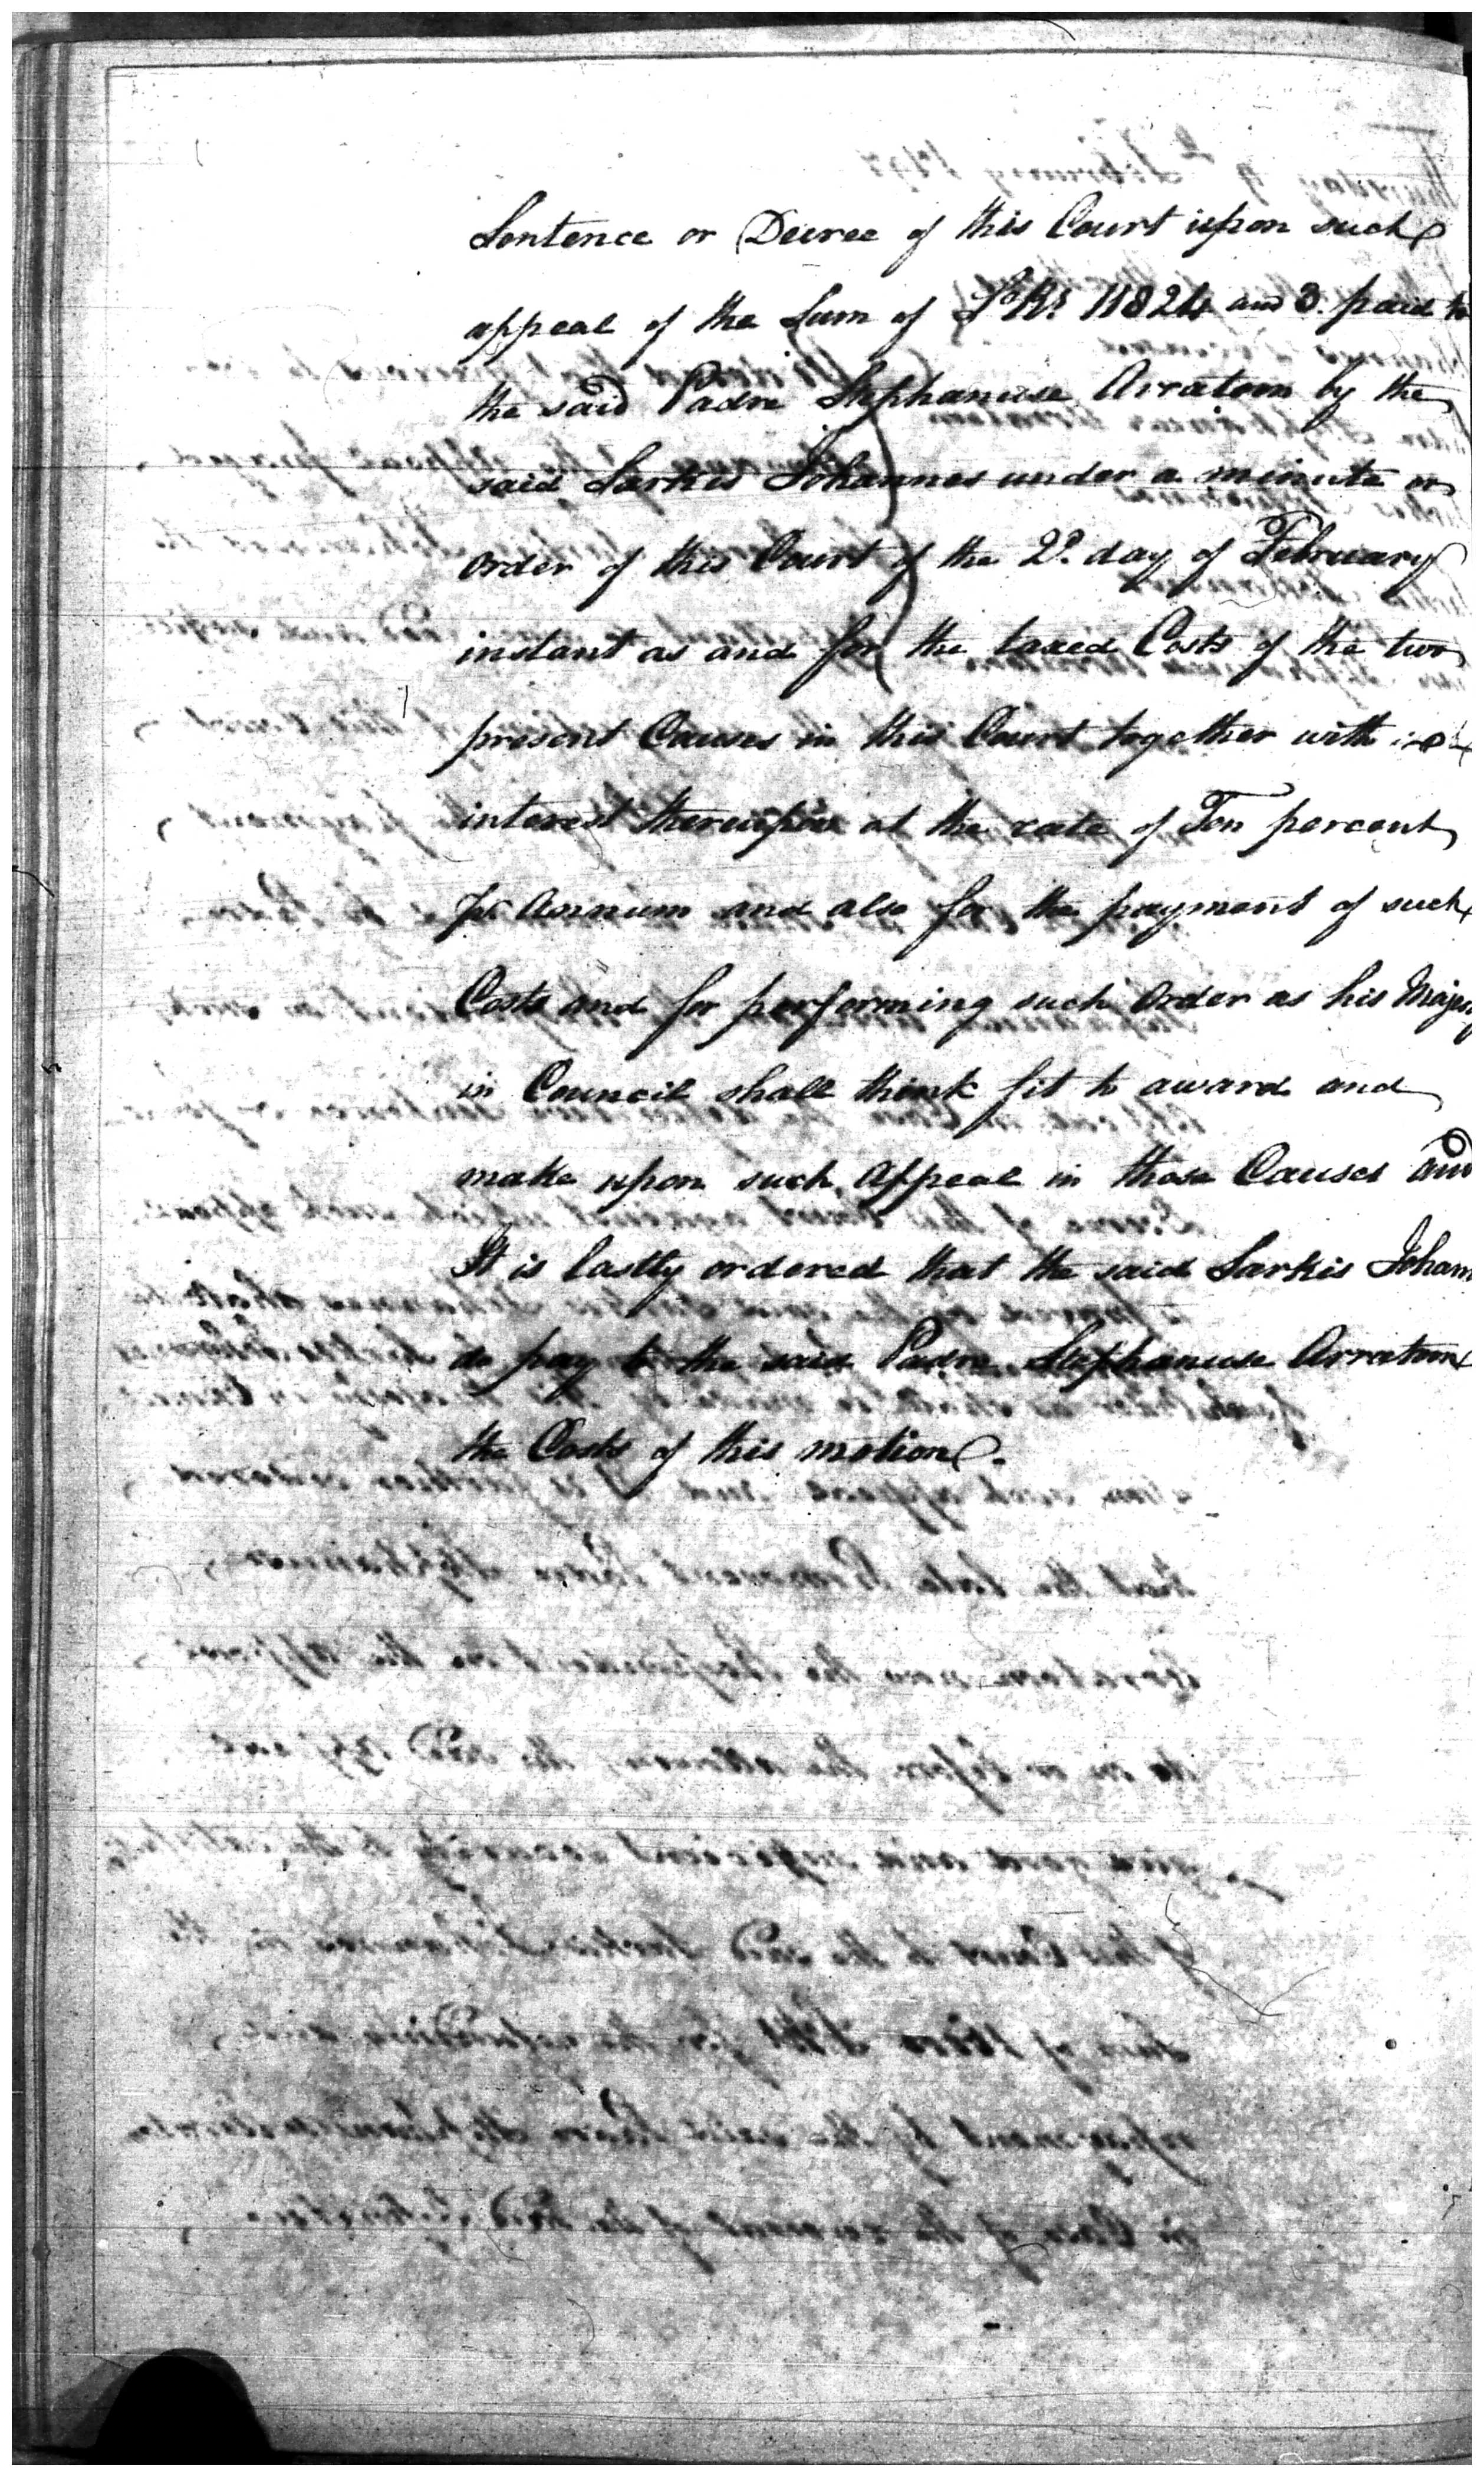 Sentence or Decree of this Court upon such
appeal of the Sum of Sa Rs 11824 and 3. paid to
the said Padre Stephanuse Arratoon by the
said Sarkis Johannes under a minute or
order of this Court of the 2d. day of February
instant as and for the taxed Costs of the two
present Causes in this Court together with
interest thereupon at the rate of Ten percent
pr Annum and also for the payment of such
Costs and for performing such Order as his Majesty
in Council shall think fit to award and
make upon such Appeal in those Causes and
It is lastly ordered that the said Sarkis Johann
do pay to the said Padre Stephanuse Arratoon
the Costs of this motion.